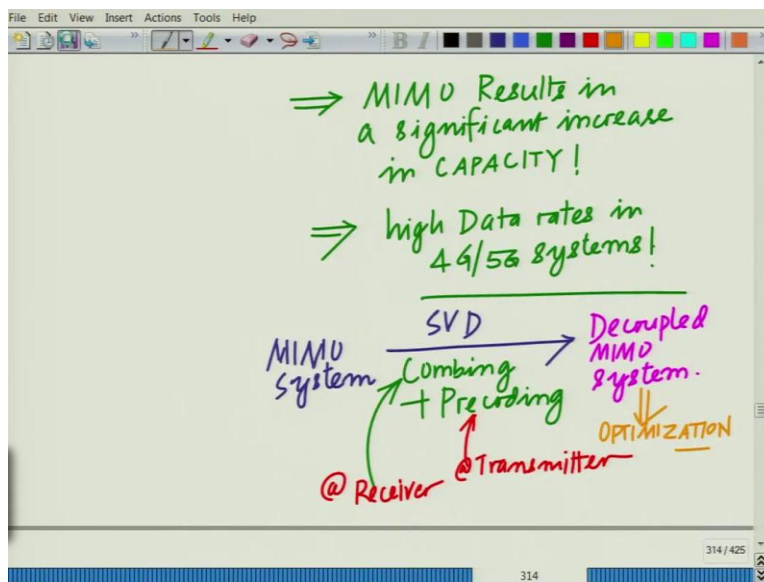 File Edit View Insert Actions Tools Help
B I
⇒ MIMO Results in
a significant increase
in CAPACITY!
⇒ high Data rates in
4G/5G systems!
SVD
MIMO
System
Combing
+ Precoding
Decoupled
MIMO
system.
OPTIMIZATION
@ Receiver
@Transmitter
314/425
314